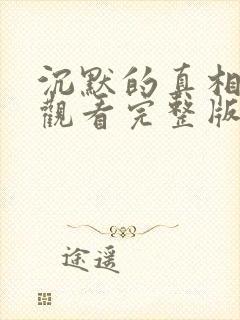 沉默的真相
觀看完整版
途遥